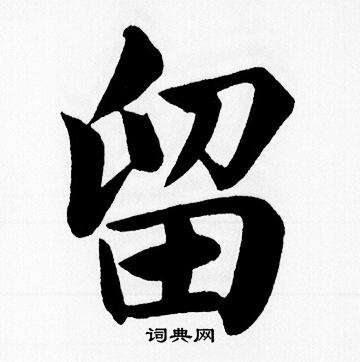 留
词典网